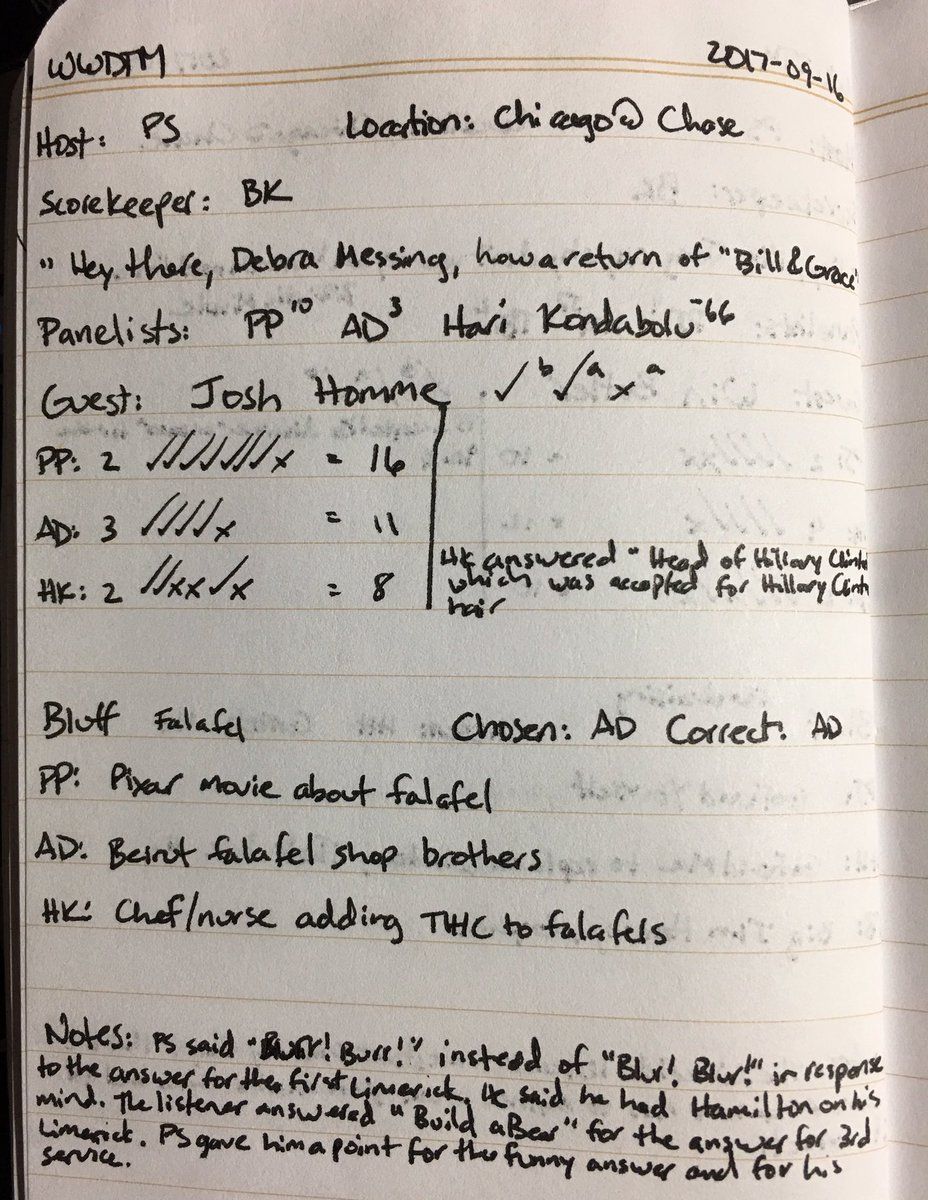 WWDTM 2017-09-16
Host: PS Location: Chicago @ Chase
Scorekeeper: BK
" Hey there, Debra Messing, how a return of "Bill & Grace"
Panelists: PP 10 AD 3 Hari Kondabolu -66
Guest: Josh Homme ✓ b ✓ a x a
PP: 2 ✓✓✓✓✓✓✓x = 16
AD: 3 ✓✓✓✓x = 11
HK: 2 ✓✓xx✓x = 8
HK answered "Head of Hillary Clint
which was accepted for Hillary Clint
hair
Bluff Falafel Chosen: AD Correct: AD
PP: Pixar movie about falafel
AD: Beirut falafel shop brothers
HK: Chef/nurse adding THC to falafels
Notes: PS said "Burr! Burr!" instead of "Blur! Blur!" in response
to the answer for the first limerick. He said he had Hamilton on his
mind. The listener answered "Build a Bear" for the answer for 3rd
limerick. PS gave him a point for the funny answer and for his
service.